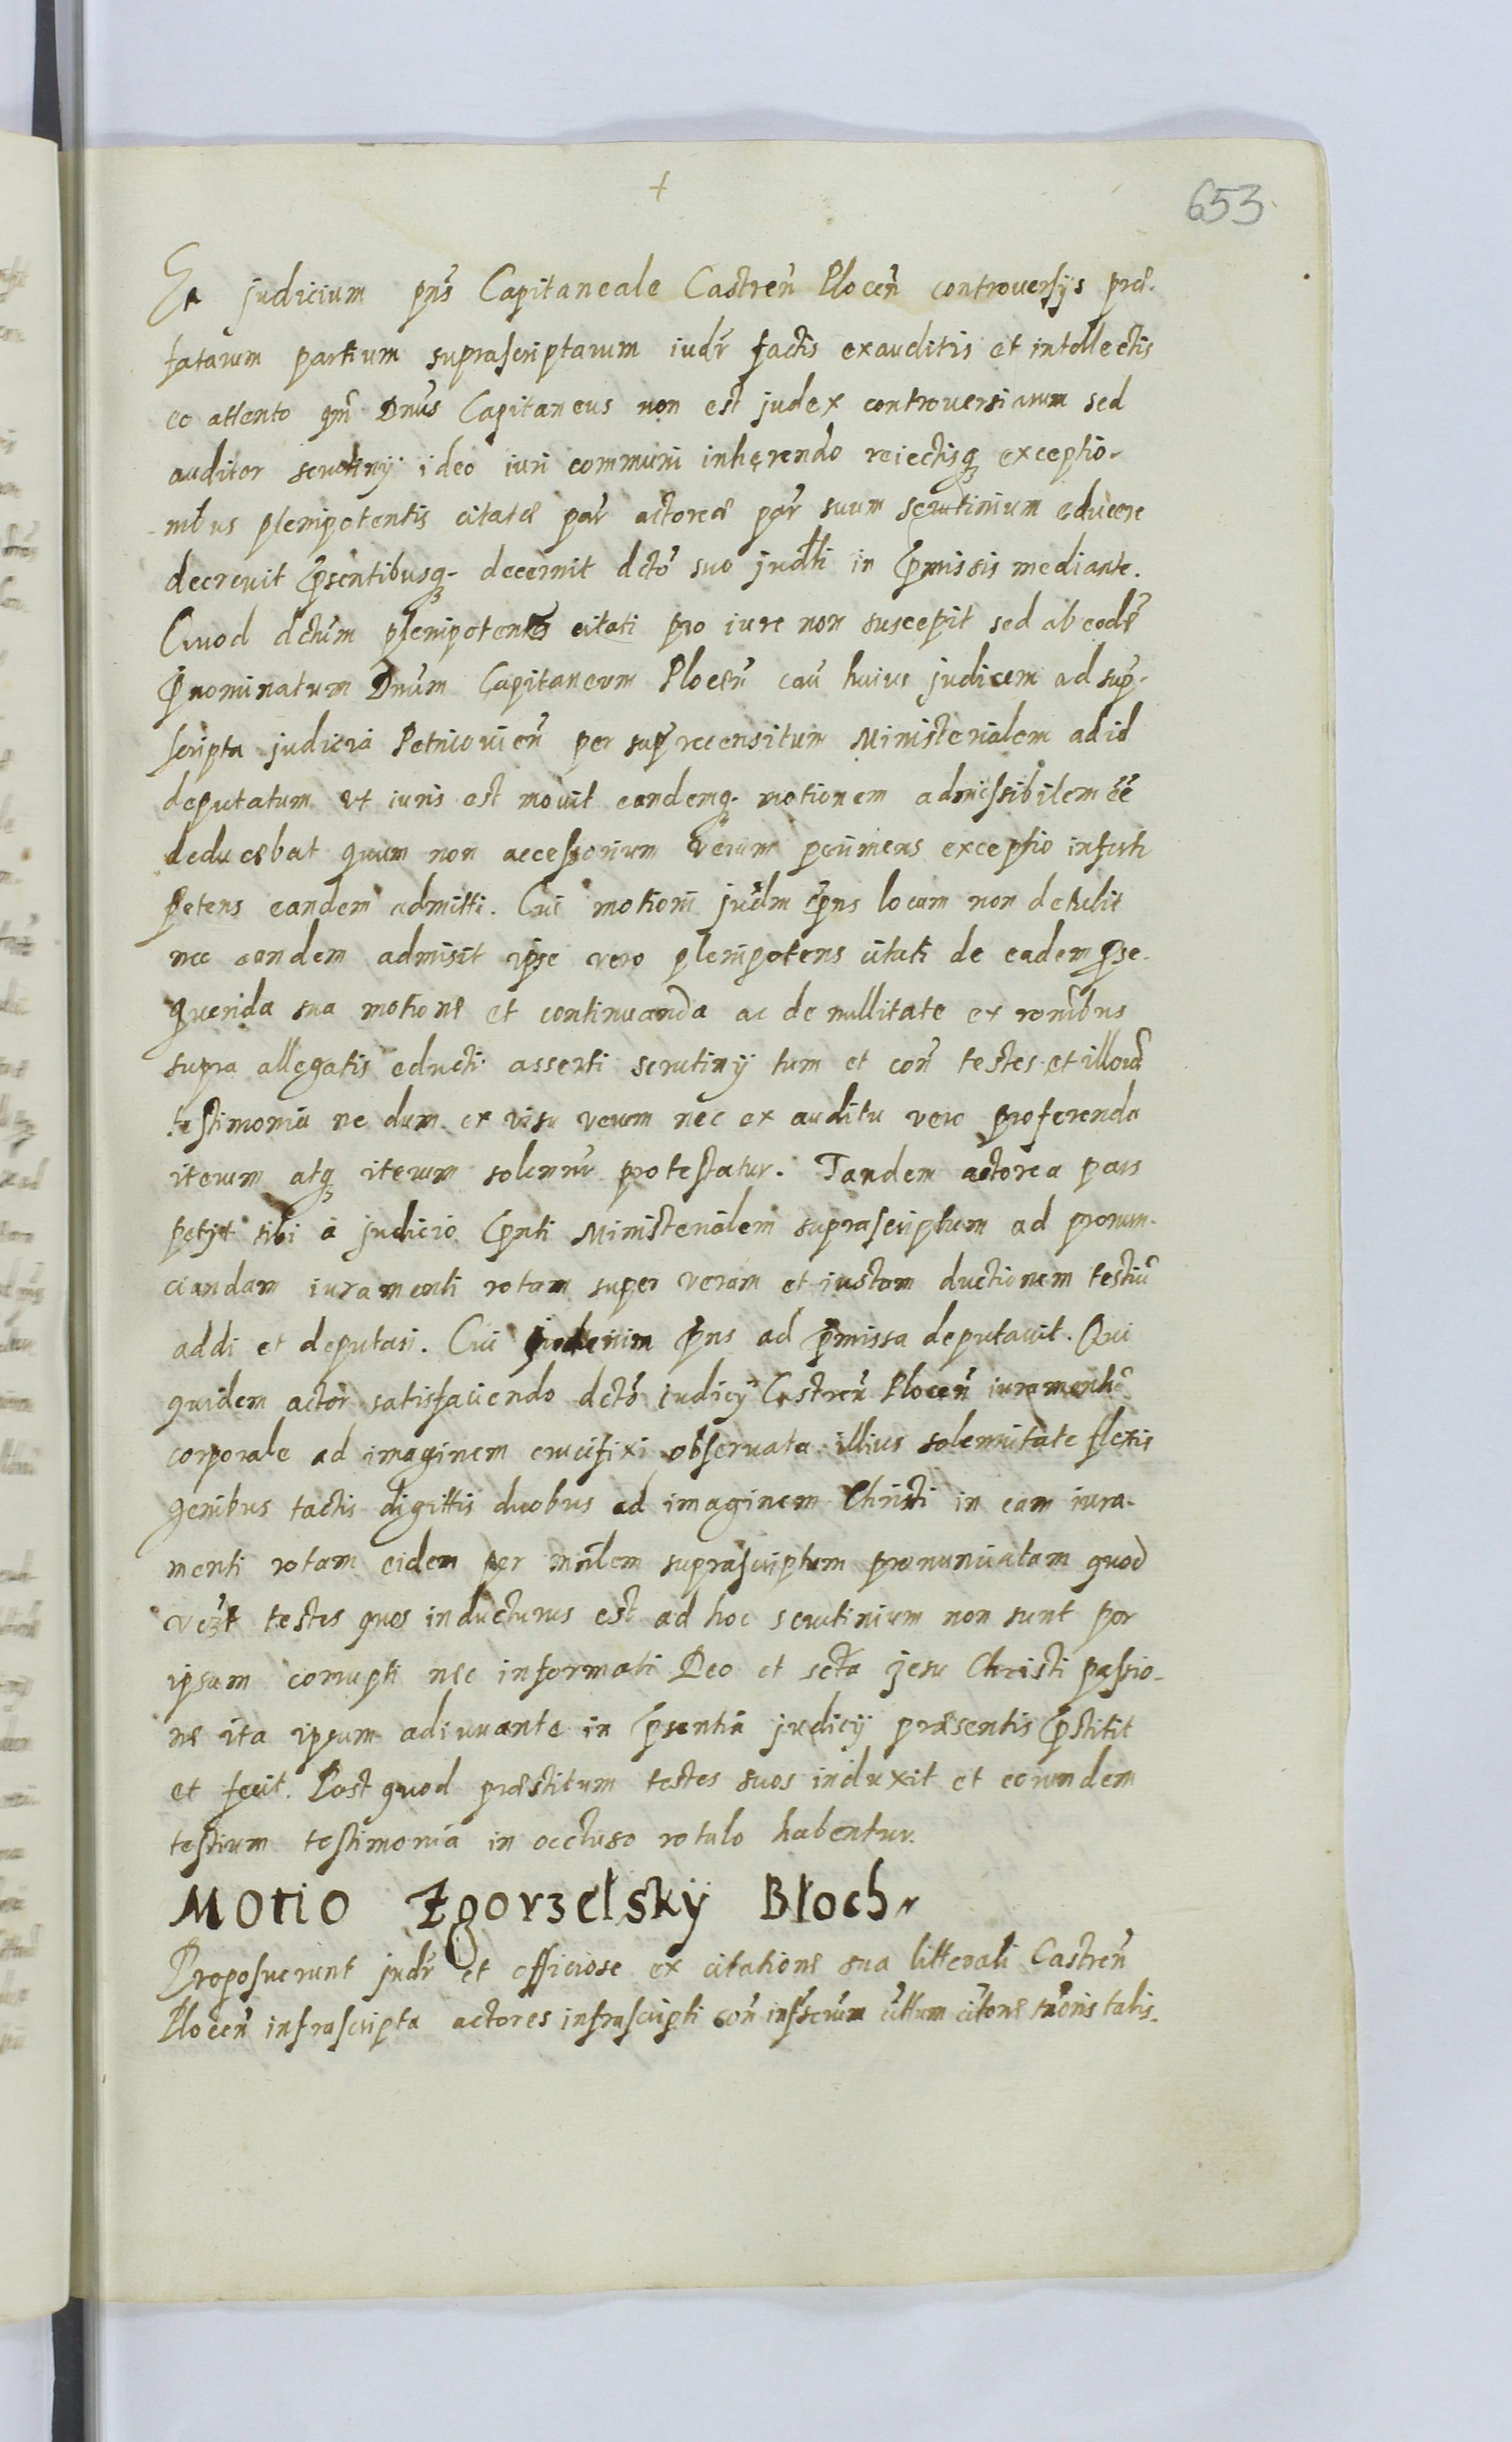 +
653
Et judicium pñs Capitaneale Castreñ Ploceñ controversijs præ-
fatarum partium suprascriptarum iudr factis exauditis et intellectis
eo attento qm̃ Dnus Capitaneus non est judex controversiarum sed
auditor scrutinij ideo iuri communi inhęrendo reiectisq exceptio-
nibus plenipotentis citatæ par actoreæ par suum scrutinium educere
decrevit p̃sentibusq decernit dctõ suo judlti in p̃missis mediante.
Quod dctum plenipotentis citati pro iure non suscepit sed ab eodẽ
p̃nominatum Dnum Capitaneum Ploceñ cau huius judicem ad sup-
scripta judicia Petricovieñ per sup recensitum Ministerialem ad id
deputatum vt iuris est movit eandemq motionem admissibilem ẽẽ
deducebat quum non accessorium verum perimens exceptio infertr
petens eandem admitti. Cui motioni judm p̃ns locum non detulit
nec eandem admisit ipse vero plenipotens citati de eadem p̃se-
quenda sua motione et continuanda ac de nullitate ex ronibus
supra allegatis educti asserti scrutinij tum et coñ testes et illorũ
testimonia ne dum ex visu verum nec ex auditu vero proferenda
iterum atq iterum solennr protestatur. Tandem actorea pars
petijt sibi à judicio p̃nti Ministerialem suprascriptum ad pronun-
ciandam iuramenti rotam super veram et iustam ductionem testiũ
addi et deputari. Cui p̃ns ad p̃missa deputavit. Qui
quidem actor satisfaciendo dctõ iudicij Castreñ Ploceñ iuramentũ
corporale ad imaginem crucifixi observata illius solennitate flexis
genibus tactis digittis duobus ad imaginem Christi in eam iura-
menti rotam eidem per mñlem suprascriptum pronunciatam quod
testes quos inducturus est ad hoc scrutinium non sunt per
ipsum corrupti nec informati Deo et scta jesu Christi passio-
ne ita ipsum adiuvante in p̃sentia judicij præsentis p̃stitit
et fecit. Post quod præstitum testes suos induxit et eorundem
testium testimonia in occluso rotulo habentur.
Motio Zgorzelskÿ Błoch
Proposuerunt judr et officiose ex citatione sua litterali Castreñ
Ploceñ infrascripta actores infrascripti coñ infscrum cittum citone tñoris talis.